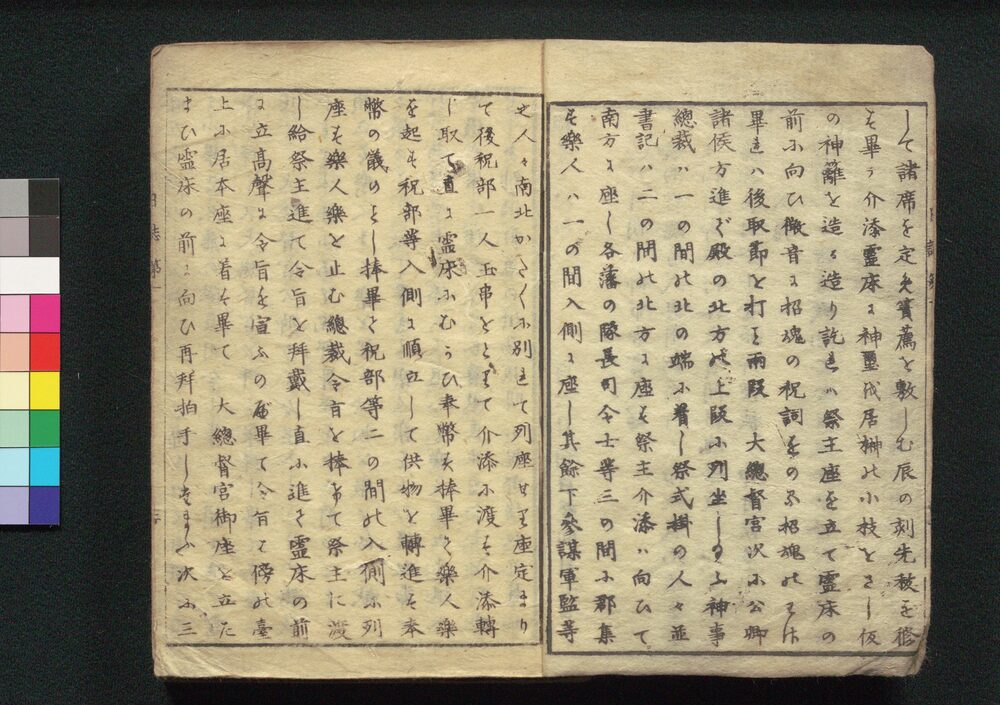 して諸席を定め簀薦を敷しむ辰の刻先祓を修
す畢り介添靈床に神璽代居榊の小枝をさし仮
の神籬を造る造り訖れハ祭主座を立て靈床の
前に向ひ微音に招魂の祝詞をのる招魂の
畢れハ後取節を打と兩段 大總督宮次に公卿
諸侯方進ぞ殿の北方の上段に列坐し 神事
總裁ハ一の間の北の端に着し祭式掛の人々並
書記ハ二の間の北方に座す祭主介添ハ向ひて
南方に座し各藩の隊長司令士等三の間に群集
す樂人ハ一の間入側に座し其餘下參謀軍監等
の人々南北かたくに別れて列座せり座定まり
て後祝部一人玉串をとりて介添に渡す介添轉
じ取て直に靈床にむかひ奉幣す捧畢て樂人樂
を起す祝部等入側に順立して供物を轉進す奉
幣の儀の し捧畢て祝部等二の間の入側に列
座す樂人樂を止む總裁令旨を捧もて祭主に渡
し給祭主進て令旨を拜戴し直に進て靈床の前
に立高聲に令旨を宣ふの 畢て令旨を傍の臺
上に居本座に着す畢て 大總督宮御座を立た
まひ靈床の前に向ひ再拜拍手したまふ次に三